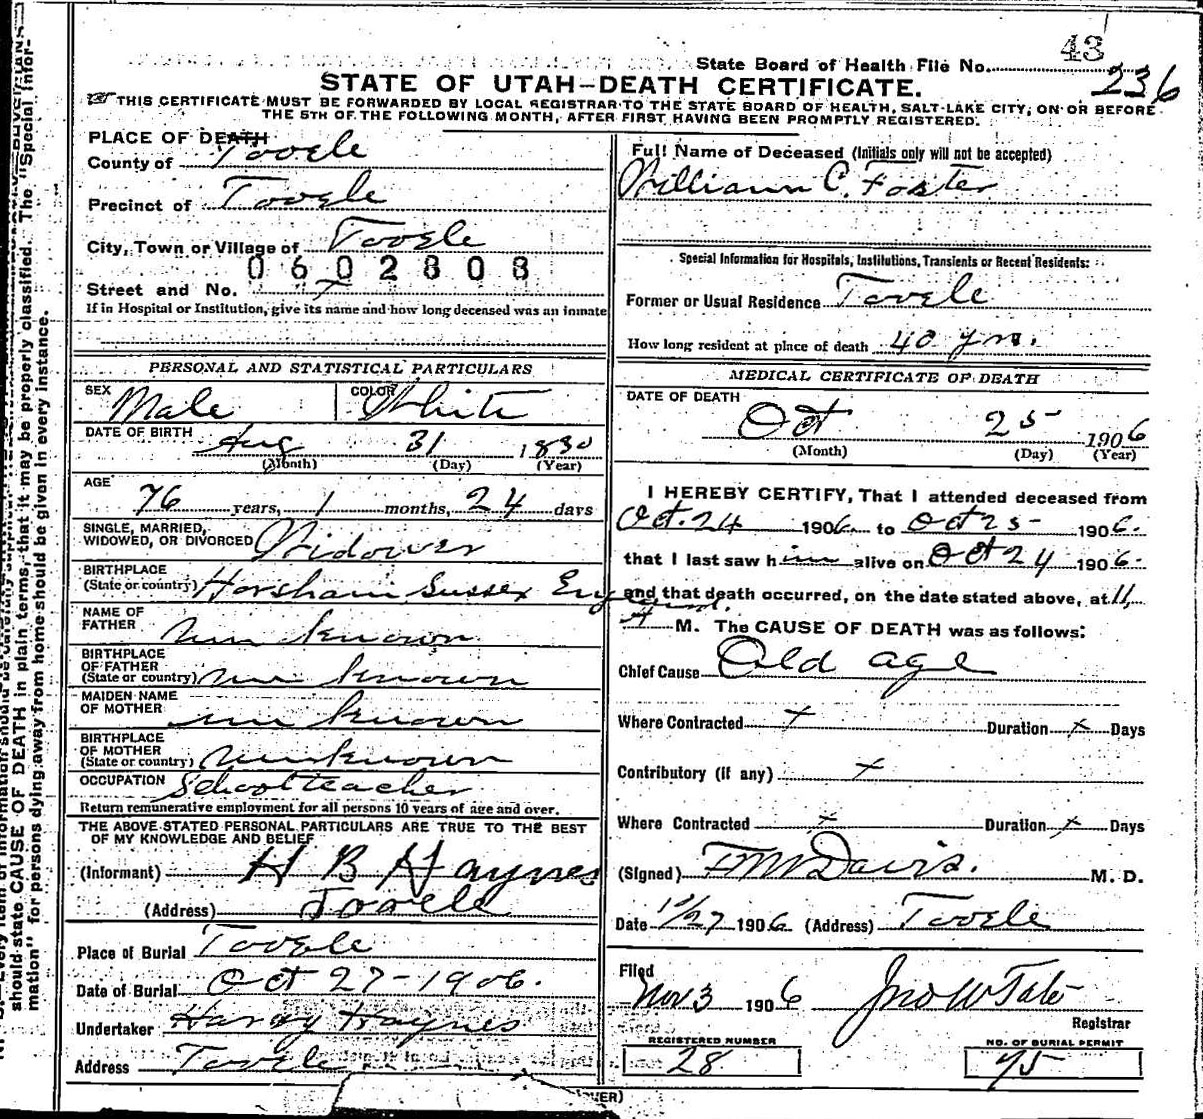 43
State Board of Health File No.
236
STATE OF UTAH—DEATH CERTIFICATE.
THIS CERTIFICATE MUST BE FORWARDED BY LOCAL REGISTRAR TO THE STATE BOARD OF HEALTH, SALT LAKE CITY, ON OR BEFORE
THE 5TH OF THE FOLLOWING MONTH, AFTER FIRST HAVING BEEN PROMPTLY REGISTERED.
PLACE OF DEATH
County of Tooele
Precinct of Tooele
City, Town or Village of Tooele
0602808
Street and No. x
If in Hospital or Institution, give its name and how long deceased was an inmate
PERSONAL AND STATISTICAL PARTICULARS
SEX Male COLOR White
DATE OF BIRTH Aug 31 1830
(Month) (Day) (Year)
AGE 76 years, 1 months, 24 days
SINGLE, MARRIED,
WIDOWED, OR DIVORCED Widower
BIRTHPLACE
(State or country) Horsham Sussex England.
NAME OF
FATHER unknown
BIRTHPLACE
OF FATHER
(State or country) unknown
MAIDEN NAME
OF MOTHER unknown
BIRTHPLACE
OF MOTHER
(State or country) unknown
OCCUPATION Schoolteacher
Return remunerative employment for all persons 10 years of age and over.
THE ABOVE STATED PERSONAL PARTICULARS ARE TRUE TO THE BEST
OF MY KNOWLEDGE AND BELIEF
(Informant) H B Haynes
(Address) Tooele
Place of Burial Tooele
Date of Burial Oct 27-1906.
Undertaker Haynes
Address Tooele
Full Name of Deceased (Initials only will not be accepted)
William C. Foster
Special Information for Hospitals, Institutions, Transients or Recent Residents:
Former or Usual Residence Tooele
How long resident at place of death 40 yrs.
MEDICAL CERTIFICATE OF DEATH
DATE OF DEATH
Oct 25 1906
(Month) (Day) (Year)
I HEREBY CERTIFY, That I attended deceased from
Oct. 24 1906 to Oct 25 1906.
that I last saw him alive on Oct 24 1906.
and that death occurred, on the date stated above, at 11
A M. The CAUSE OF DEATH was as follows:
Chief Cause Old age
Where Contracted x Duration x Days
Contributory (if any) x
Where Contracted x Duration x Days
(Signed) Davis. M. D.
Date 1906 (Address) Tooele
Filed
Nov 3 1906 Jno W Tate
Registrar
REGISTERED NUMBER
28
NO. OF BURIAL PERMIT
75
should state CAUSE OF DEATH in plain terms, that it may be properly classified. The "Special Infor-
mation" for persons dying away from home should be given in every instance.